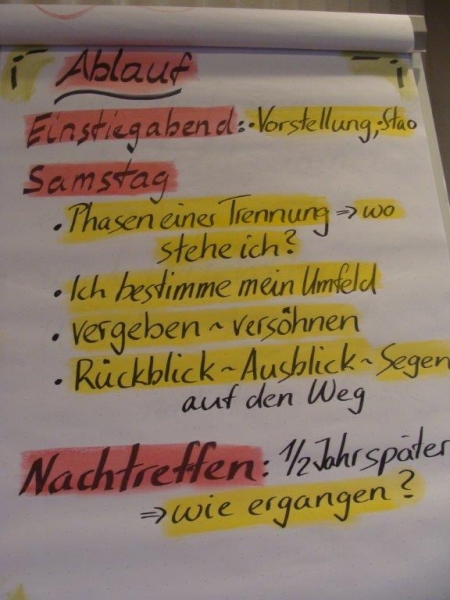 Ablauf
Einstiegabend: • Vorstellung, • Stao
Samstag
• Phasen einer Trennung ⇒ wo
stehe ich?
• Ich bestimme mein Umfeld
• vergeben ~ versöhnen
• Rückblick ~ Ausblick ~ Segen
auf den Weg
Nachtreffen: 1/2 Jahr später
⇒ wie ergangen?